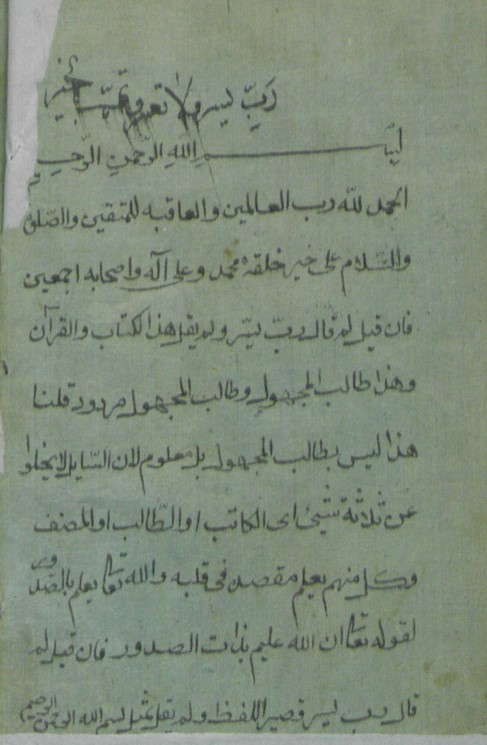 رَبِّ يسر ولا تعسر وتمم بالخير
بسم الله الرحمن الرحيم
الحمد لله رب العالمين والعاقبة للمتقين والصلوة
والسلام على خير خلقه محمد وعلى آله واصحابه اجمعين
فان قيل لم قال ربّ يسّر ولم يقل هذا الكتاب والقرآن
وهذا طالب المجهول وطالب المجهول مردود قلنا
هذا ليس بطالب المجهول بل معلوم لان السّايل لا يخلوا
عن ثلاثة شيئ اى الكاتب او الطّالب او المصنف
وكل منهم يعلم مقصده فى قلبه والله تعا يعلم بالصّدور
لقوله تعا ان الله عليم بذات الصدور فان قيل لم
قال رب يسر قصير اللفظ ولم يقل بمثل بسم الله الرحمن الرحيم